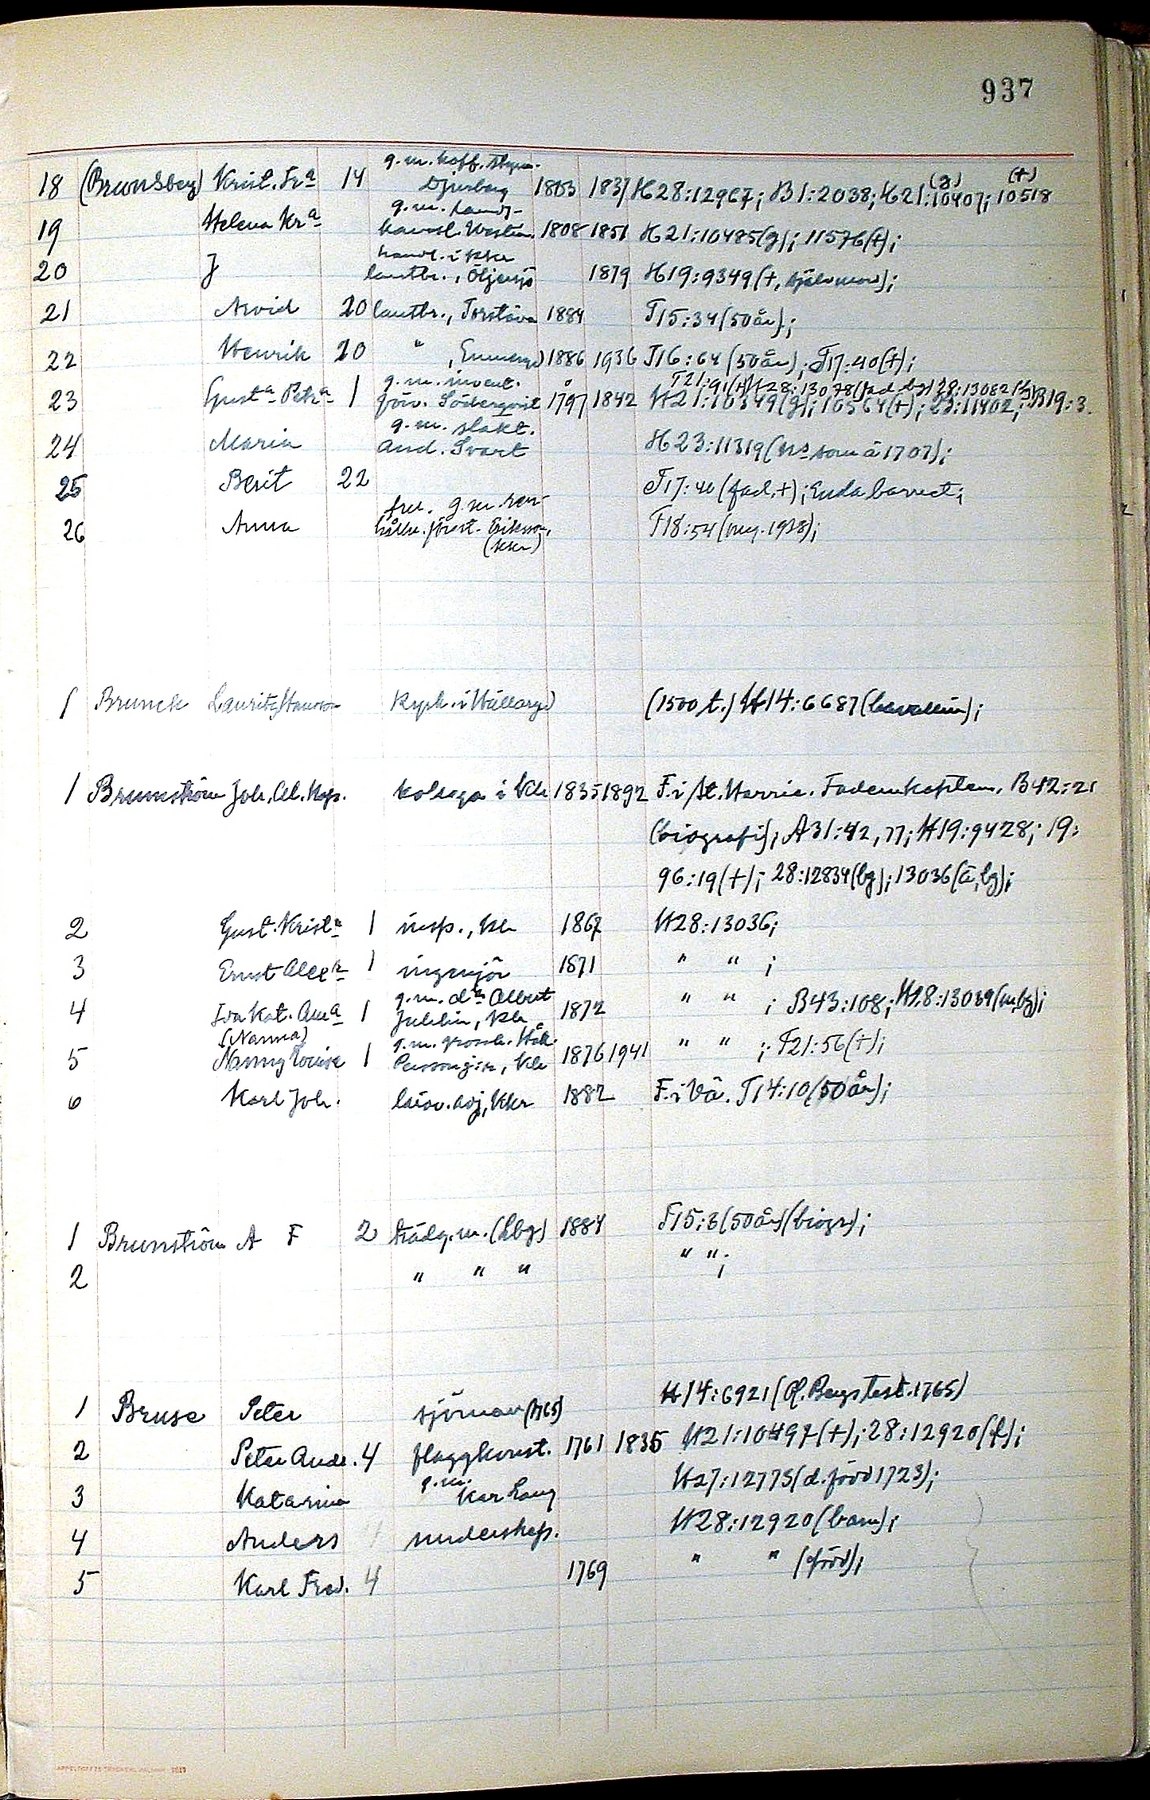 937
18 (Brunsberg) Krist. Fr:a 14 g.m. koff. styrm. Djurberg 1803 1837 H28:12967; B1:2038; H21:10407(g); 10518(+)
19 Helena Kr:a g.m. handl. 1808 1851 H21:10485(g); 11576(+);
20 J handl. i Kkr lantbr., Öljersjö 1879 H19:9349(+, självmord);
21 Arvid 20 lantbr., Torstäva 1884 T15:34(50år);
22 Henrik 20 " , 1886 1936 T16:64(50år); T17:40(+);
23 Gust:a Petr:a 1 g.m. Söderqvist 1797 1842 H21:10349(g); 10564(+); 23:11402; B19:3.
24 Maria g.m. slakt. And. Svart H23:11319( som ä 1707);
25 Berit 22 T17:40(fad,+); Enda barnet;
26 Anna fru. g.m. förest. Eriksson, (kkr) T18:54(1938);
1 Brunck Kyrk. i Hällaryd (1500 t.) H14:6687
1 Brunström Joh. Al. kollega i Kkr 1835 1892 F. i St. Harrie. Fadern kaplan. B42:21
(biografi); A31:42, 77; H19:9428; 19:
96:19(+); 28:12834(bg); 13036(ä,bg);
2 Gust. Krist:n 1 insp., Kkr 1867 H28:13036;
3 Ernst Alex:r 1 ingenjör 1871 " " ;
4 Eva Kat. Am:a 1 g.m. d:r Albert Jublin, Kkr 1872 " " ; B43:108; H28:13039
5 (Nanna) Nanny Lovisa 1 g.m. grossh. Håk. 1876 1941 " " ; T21:56(+);
6 Karl Joh. lärov.adj, Kkr 1882 F. i Vä. T14:10(50år);
1 Brunström A F 2 trädg.m. (Lbg) 1884 T15:3(50år)(biogr);
2 " " " " ";
1 Bruse Peter sjöman (1765) H14:6921(Ol. Bergs test. 1765)
2 Peter Andr. 4 flaggkonst. 1761 1835 H21:10497(+); 28:12920(f);
3 Katarina g.m. Kar Lang H27:12775(d. född 1723);
4 Anders 4 underskep. H28:12920(barn);
5 Karl Fred. 4 1769 " " (född);